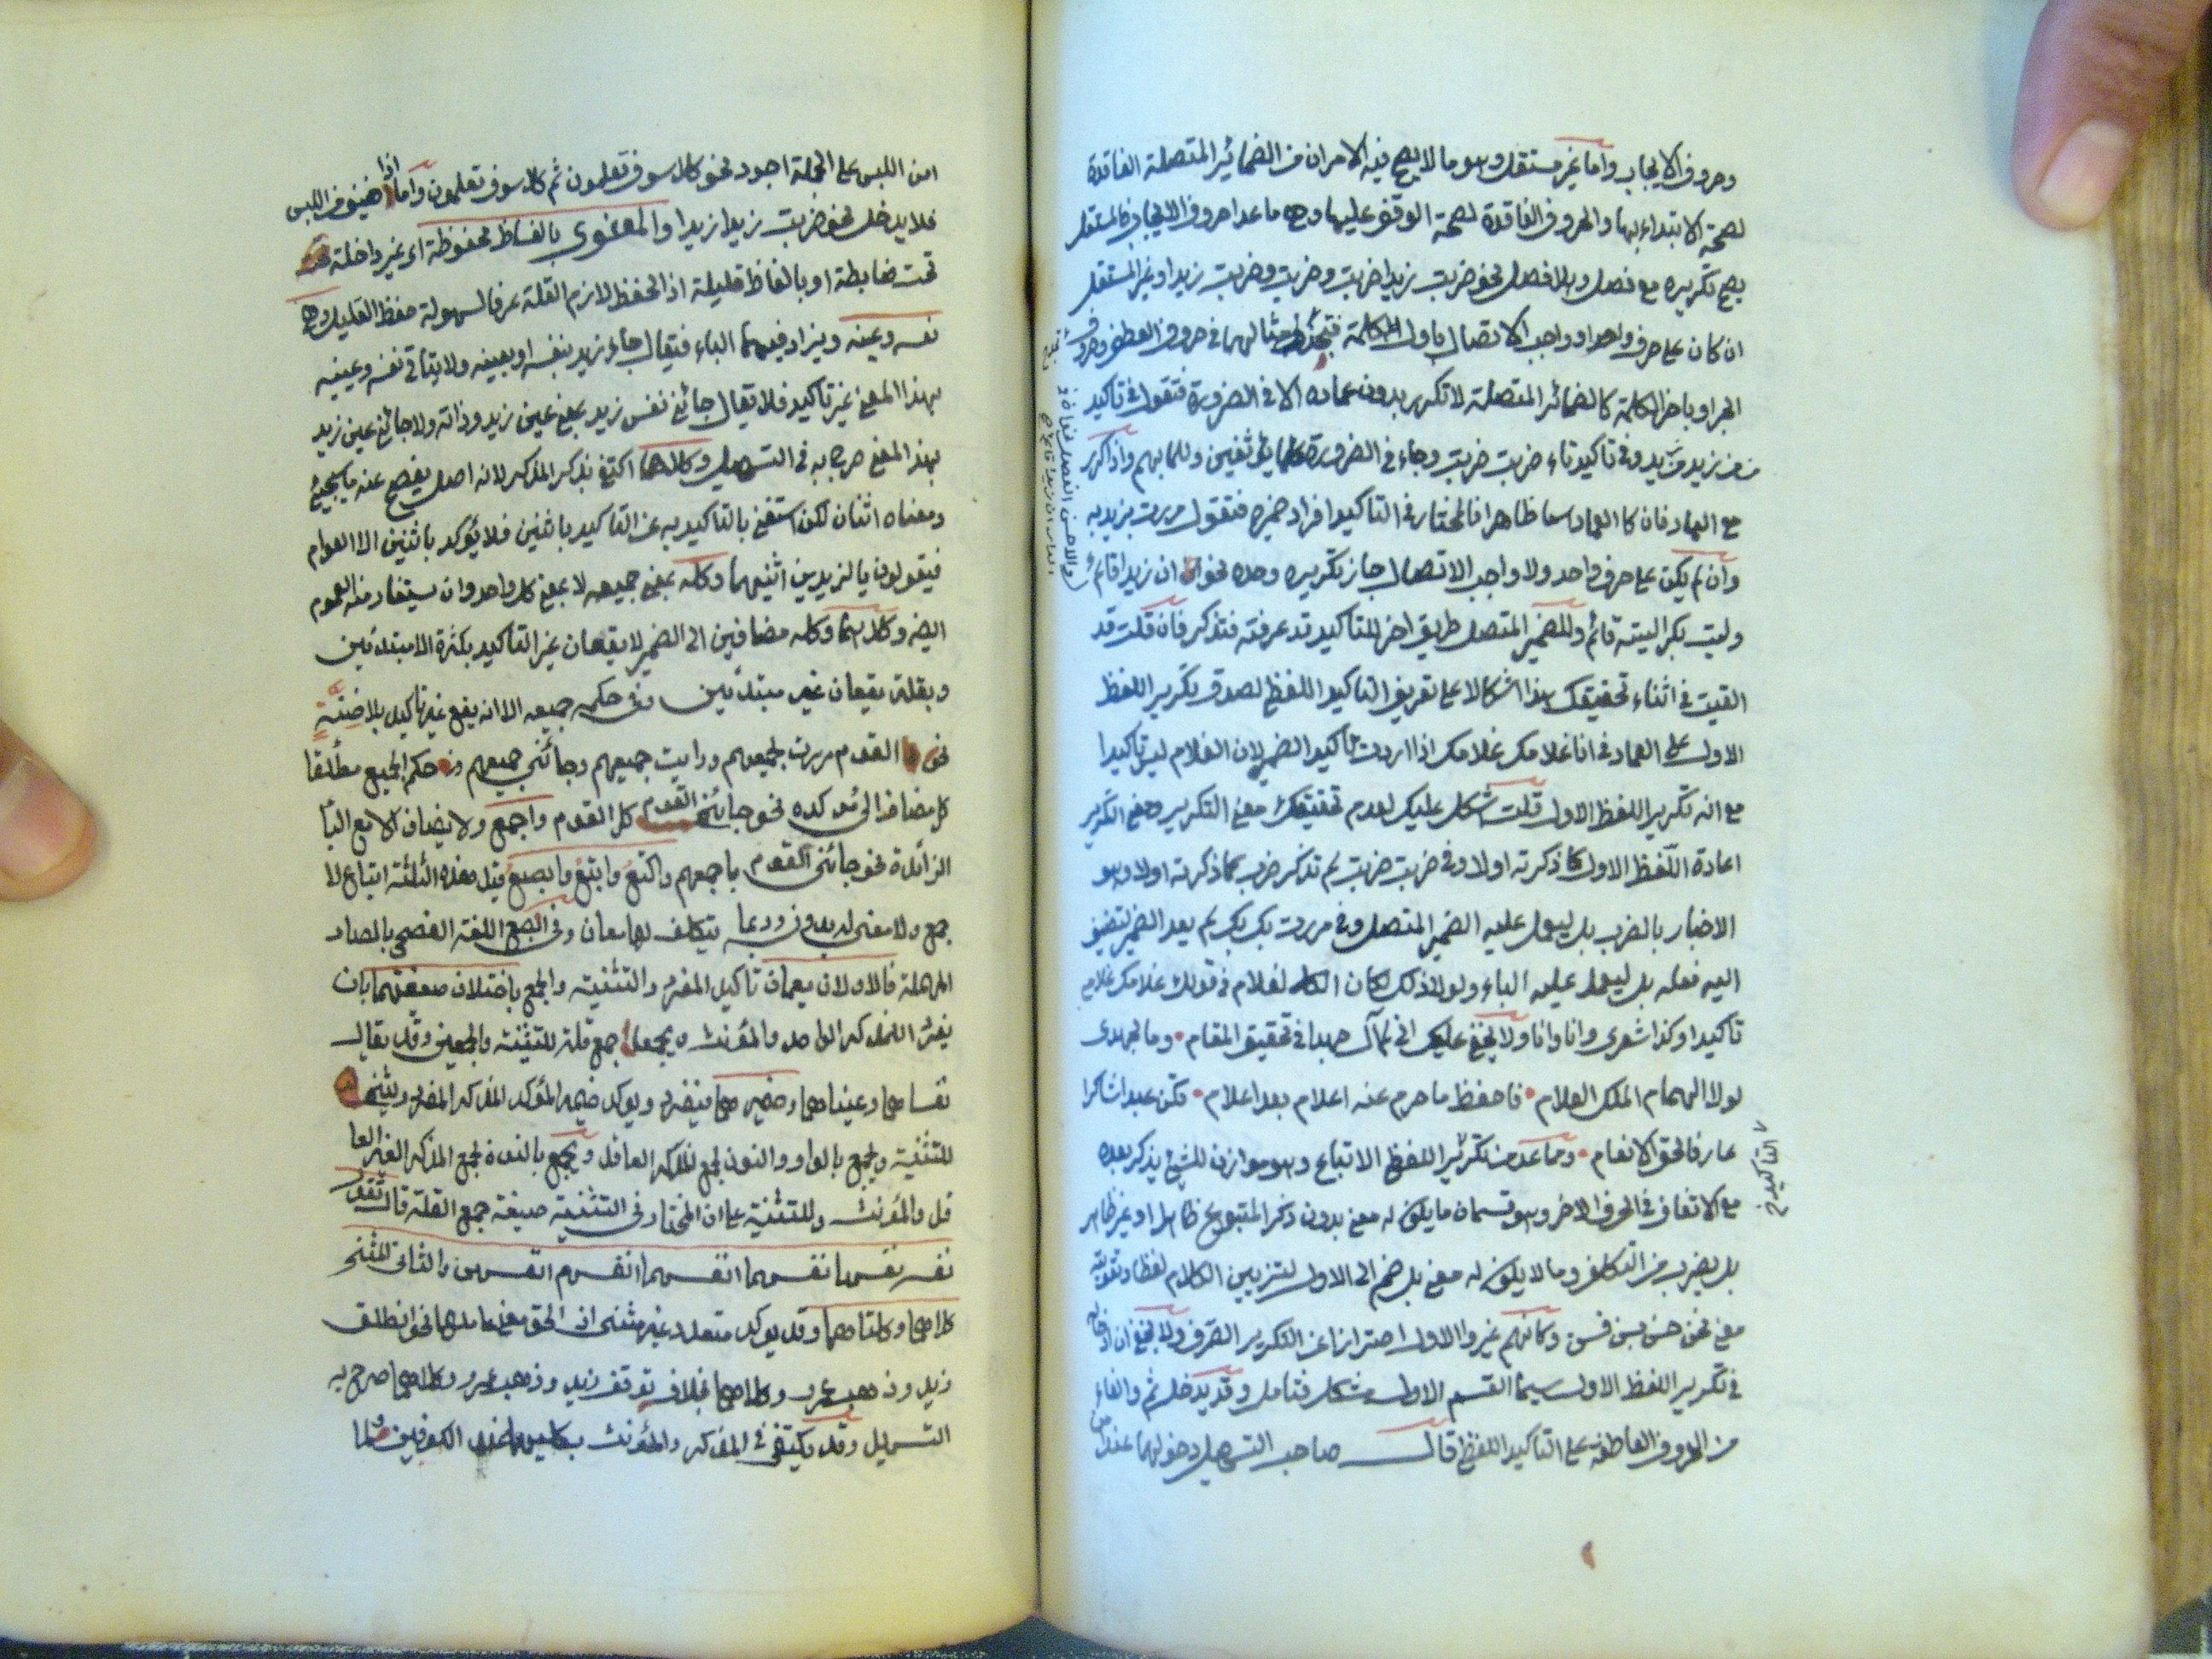 وحروف الايجاب واما غير مستقل وهو ما لا يصح فيه الامران من الضمائر المتصلة الفاقدة
لصحة الابتداء بها والحروف الفاقدة لصحة الوقف عليها وهي ما عدا حروف الايجاب فالمستقل
يصح تكريره مع فصل وبلا فصل نحو ضربت زيدا ضربت وضربت وضربت زيدا وغير المستقل
ان كان على حرف واحد او واجب الاتصال باول الكلمة مثالهما في حروف العطف وحروف
الجر او باخر الكلمة كالضمائر المتصلة لا تكرر بدون عماده الا في الضرورة فتقول في تاكيد
من بزيد بزيد وفي تاكيد تاء ضربت ضربت وجاء في الضرورة وللما بهم واذا كرر
مع العماد فان كان العماد اسما ظاهرا فالمختار في التاكيد افراد ضميره فتقول مررت بزيد به
وان لم يكن على حرف واحد ولا واجب الاتصال جاز تكريره وحده نحو ان ان زيدا قائم
وليت بكرا ليته قائم وللضمير المتصل طريق اخر للتاكيد قد عرفته فتذكر فان قلت قد
القيت في اثناء تحقيقك هذا اشكالا على تعريف التاكيد اللفظي لصدق تكرير اللفظ
الاول على العماد في انا غلامك غلامك اذا اردت تاكيد الضمير لان الغلام ليس تاكيدا
مع انه تكرير اللفظ الاول قلت اشكل عليك لعدم تحقيقك معنى التكرير ومعنى التكرير
اعادة اللفظ الاول كما ذكرته اولا وفي ضربت ضربت لم تذكر ضرب كما ذكرته اولا وهو
الاخبار بالضرب بل ليعمل عليه الضمير المتصل وفي مررت بك بك لم يعد الضمير لتضيف
اليه فعله بل ليعمل عليه الباء ولولا ذلك لكان الغلام في قولك غلامك غلامك
تاكيدا وكذا شعرى وانا وانا ولا يخفى عليك اني لم آل جهدا في تحقيق المقام وما لجهدى
لولا الهام الملك العلام فاحفظ ما حرم عنه اعلام بعد اعلام فكن عبدا شاكرا
عارفا لحق الانعام ومما عد من تكرير اللفظ الاتباع وهو موازن للشئ يذكر بعده
مع الاتفاق في الحرف الاخر وهو قسمان ما يكون له معنى بدون ذكر المتبوع ظاهر او غير ظاهر
بل بضرب من التكلف وما لا يكون له معنى بل ضم الى الاول لتزيين الكلام لفظا وتقويته
معنى نحو حسن بسن فسن وكانهم غيروا الاول احترازا عن التكرير الصرف ولا يخفى ان ادخاله
في تكرير اللفظ الاول سيما القسم الاول مشكل فتامل وقد يدخل ثم والفاء
من الحروف العاطفة على التاكيد اللفظي قال صاحب التسهيل دخولهما عند
امن اللبس على الجملة اجود نحو كلا سوف تعلمون ثم كلا سوف تعلمون واما اذا خيف من اللبس
فلا يدخل نحو ضربت زيدا زيدا والمعنوي بالفاظ محفوظة اى غير داخلة
تحت ضابطة او بالفاظ قليلة اذ الحفظ لازم القلة عرفا لسهولة حفظ القليل وهي
نفسه وعينه ويزاد فيهما الباء فيقال جاء زيد بنفسه او بعينه ولا ياتي نفسه وعينه
بهذا المعنى غير تاكيد فلا يقال جائني نفس زيد بمعنى عين زيد وذاته ولا جائني عين زيد
بهذا المعنى صرح به في التسهيل وكلاهما اكتفى بذكر المذكر لانه اصل يفصح عنه ما سيجئ
ومعناه اثنان لكن استغنى بالتاكيد به عن التاكيد باثنين فلا يؤكد باثنين الا العوام
فيقولون يا لزيدين اثنيهما وكله بمعنى جميعه لا بمعنى كل واحد وان يستفاد منه العموم
ايضا وكلاهما وكله مضافين الى الضمير لا يقعان غير التاكيد بكثرة الا مبتدئين
وبقلة يقعان غير مبتدئين وفي حكمه جميعه الا انه يقع غير تاكيد بلا ضنة
نحو القوم مررت بجميعهم ورايت جميعهم وجائني جميعهم وفي حكم الجميع مطلقا
كل مضافا الى مؤكده نحو جائني القوم كل القوم واجمع ولا يضاف الا مع الباء
الزائدة نحو جائني القوم باجمعهم واكتع وابتع وابصع قيل هذه الثلثة اتباع لا
جمع ولا معنى له بدون وربما يتكلف لها معان وفي ابصع اللغة الفصحى بالصاد
المهملة فالاولان يعمان تاكيد المفرد والتثنية والجمع باختلاف صيغتهما بان
يفرد للمذكر الواحد والمؤنث ويجمعا جمع قلة للتثنية والجمعين وقد يقال
نفساهما وعيناهما وضميرهما فيفرد ويوكد ضمير المؤكد المذكر المفرد ويثنى
للتثنية ويجمع بالواو والنون لجمع المذكر العاقل ويجمع بالنون لجمع المذكر الغير العا
قل والمؤنث وللتثنية على ان المختار في التثنية صيغة جمع القلة قال تقول
نفسه نفسها انفسهما انفسهم انفسهن والثانى للمثنى
كلاهما وكلتاهما وقد يوكد متعدد غير مثنى ان الحق معنى عاملهما نحو انطلق
زيد وذهب عمرو وكلاهما بخلاف توقف زيد وذهب عمرو وكلاهما صرح به
التسهيل وقد يكتفى في المذكر والمؤنث بكليهما عند الكوفيين